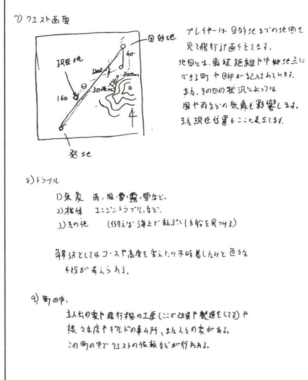 7) クエスト画面
目的地
現在地
160
40
3000m
発地
プレイヤーは目的地までの地図を
見て飛行計画をたてます。
地図には、最短距離や中継地点に
できる町や目印が記入されています。
また、その日の状況によっては
風や雨などの気象も影響します。
また現在位置もここで表示します。
8) トラブル
1) 気象 雨、風、雪、霧、雷など。
2) 機体 エンジントラブル、など。
3) その他 (例えば海上で転ぷくした船を見つける)
解決としてはコースや高度を変えたり不時着したりと色々な
手段が考えられる。
9) 町の中。
主人公の家や飛行機の工場(ここで改造や製造をしてる)や
様々な店や村の人の事ム所、また人々の家がある。
この町の中でクエストの依頼などが行われる。